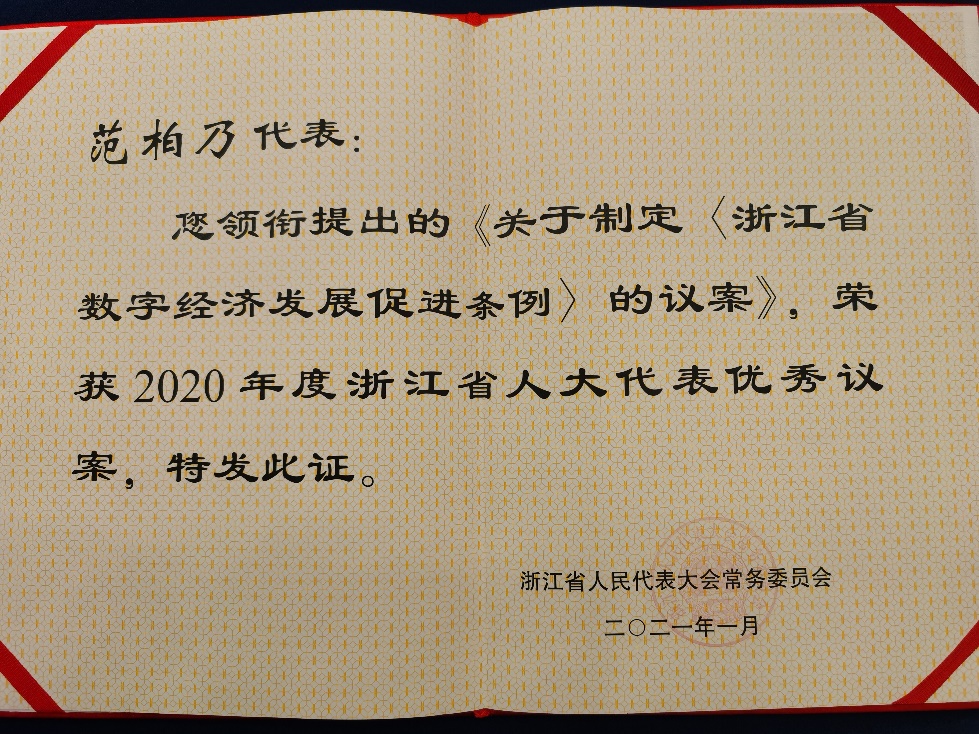 范柏乃代表：
您领衔提出的《关于制定〈浙江省
数字经济发展促进条例〉的议案》，荣
获2020年度浙江省人大代表优秀议
案，特发此证。
浙江省人民代表大会常务委员会
二〇二一年一月